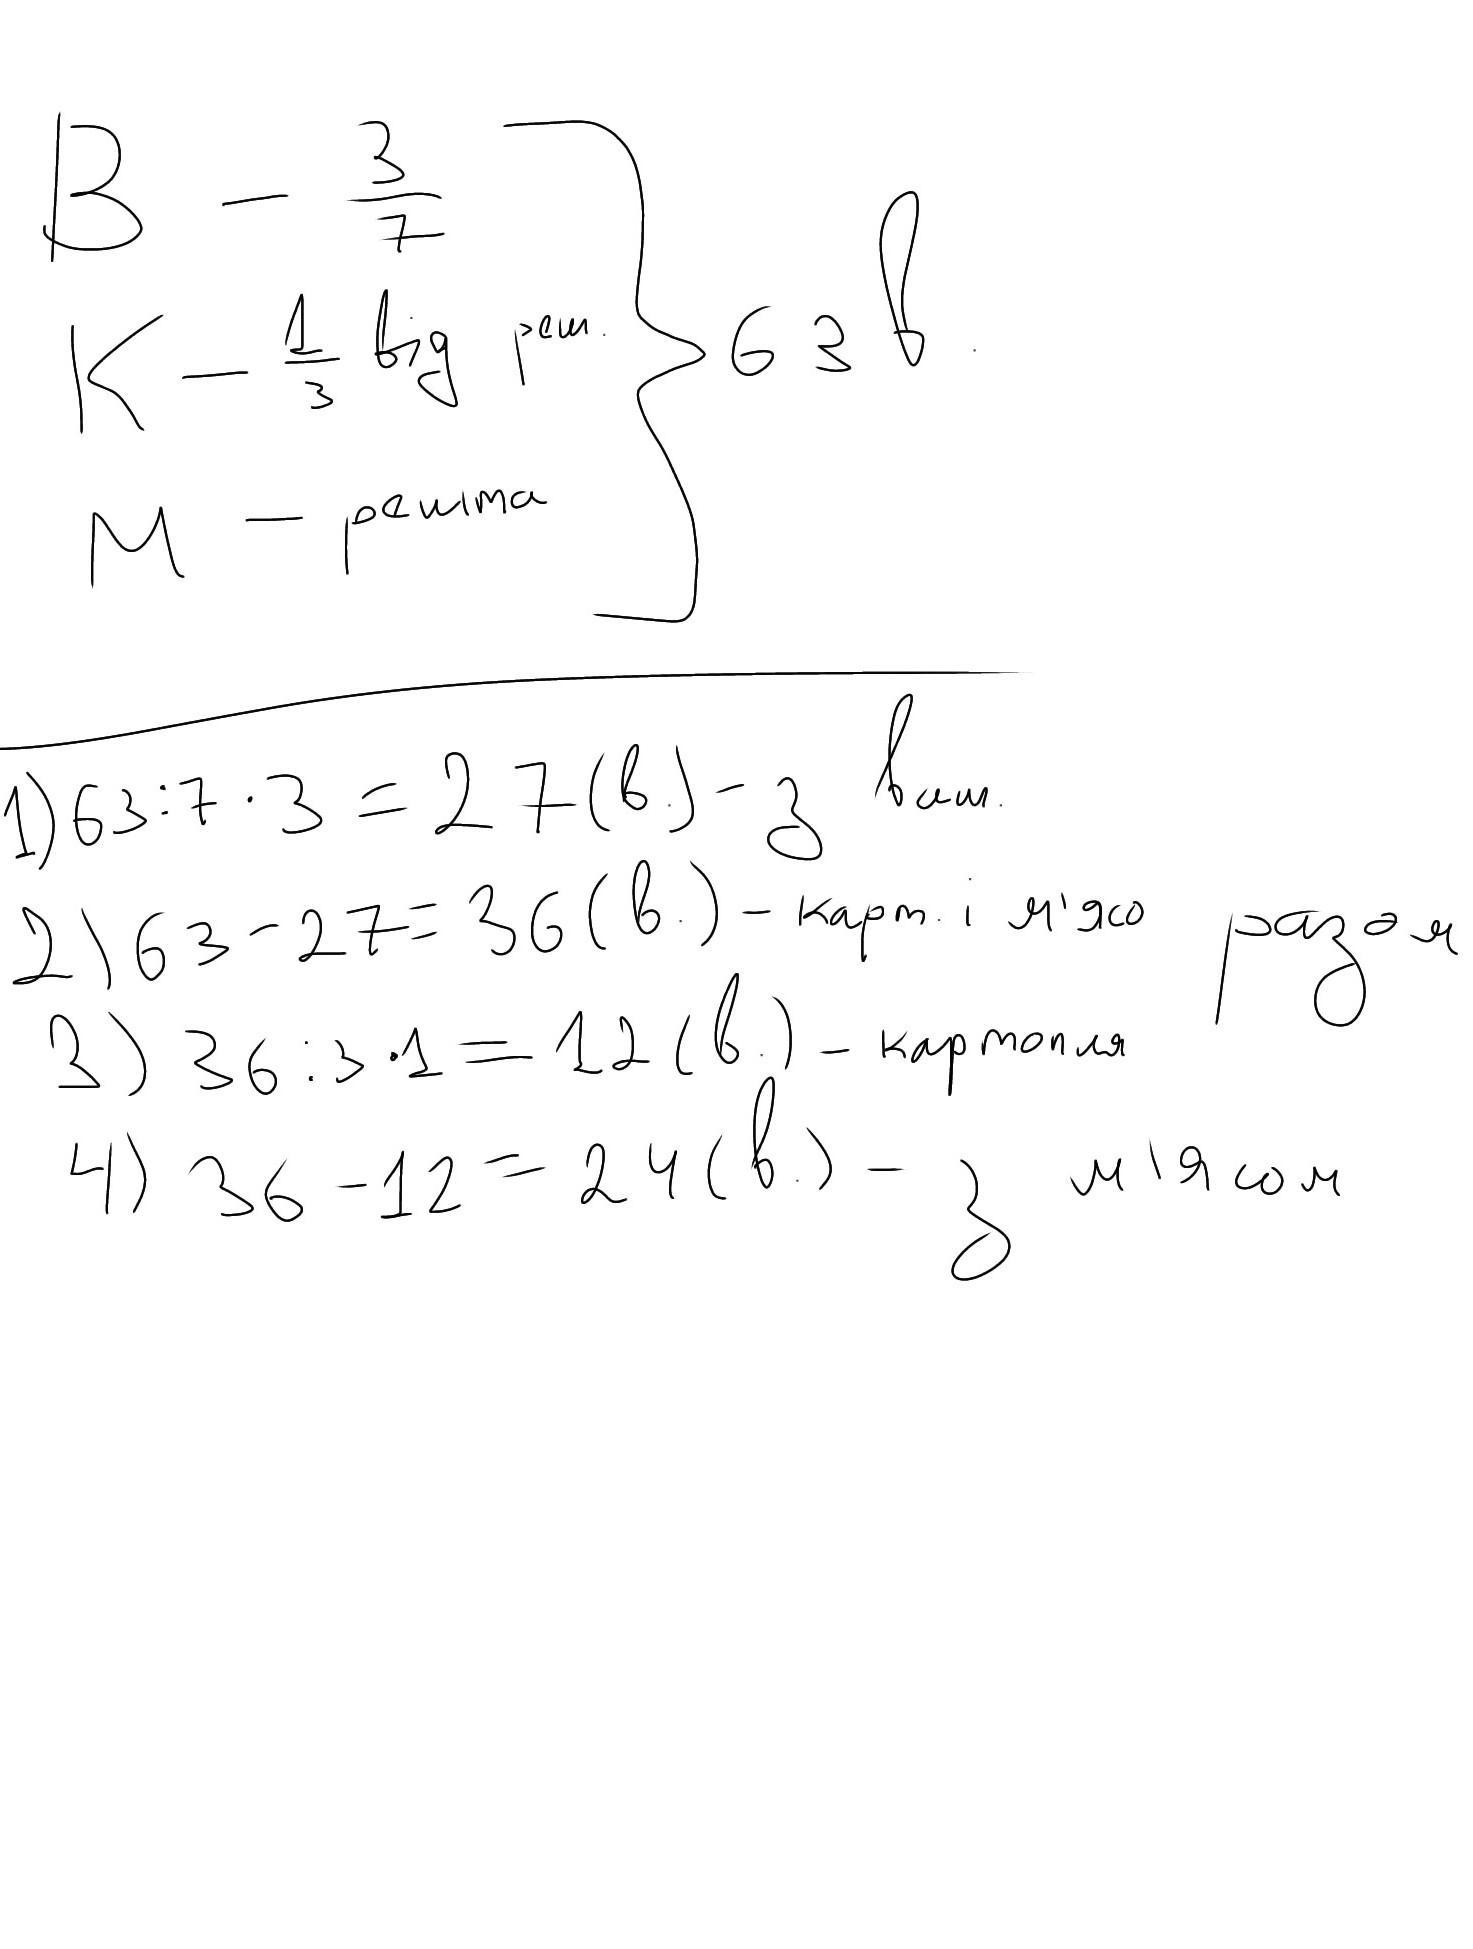 В - 3/7
К - 1/3 від реш.
М - решта
63 в.
1) 63:7·3 = 27 (в.) - з виш.
2) 63-27 = 36 (в.) - карт. і м'ясо разом
3) 36:3·1 = 12 (в.) - картопля
4) 36-12 = 24 (в.) - з м'ясом